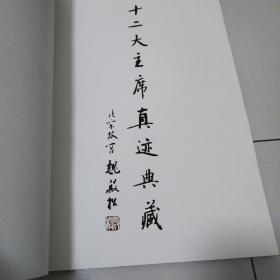 十二大主席真迹典藏
北京故宫 魏殿松